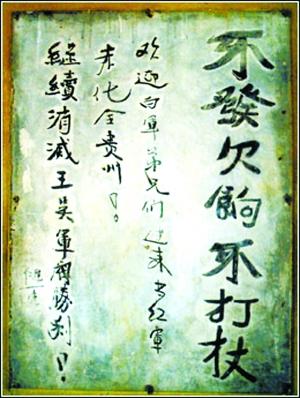 不發欠餉不打杖
欢迎白軍弟兄們过来当红軍
赤化全贵州！
继續消滅王吴軍閥勝利！